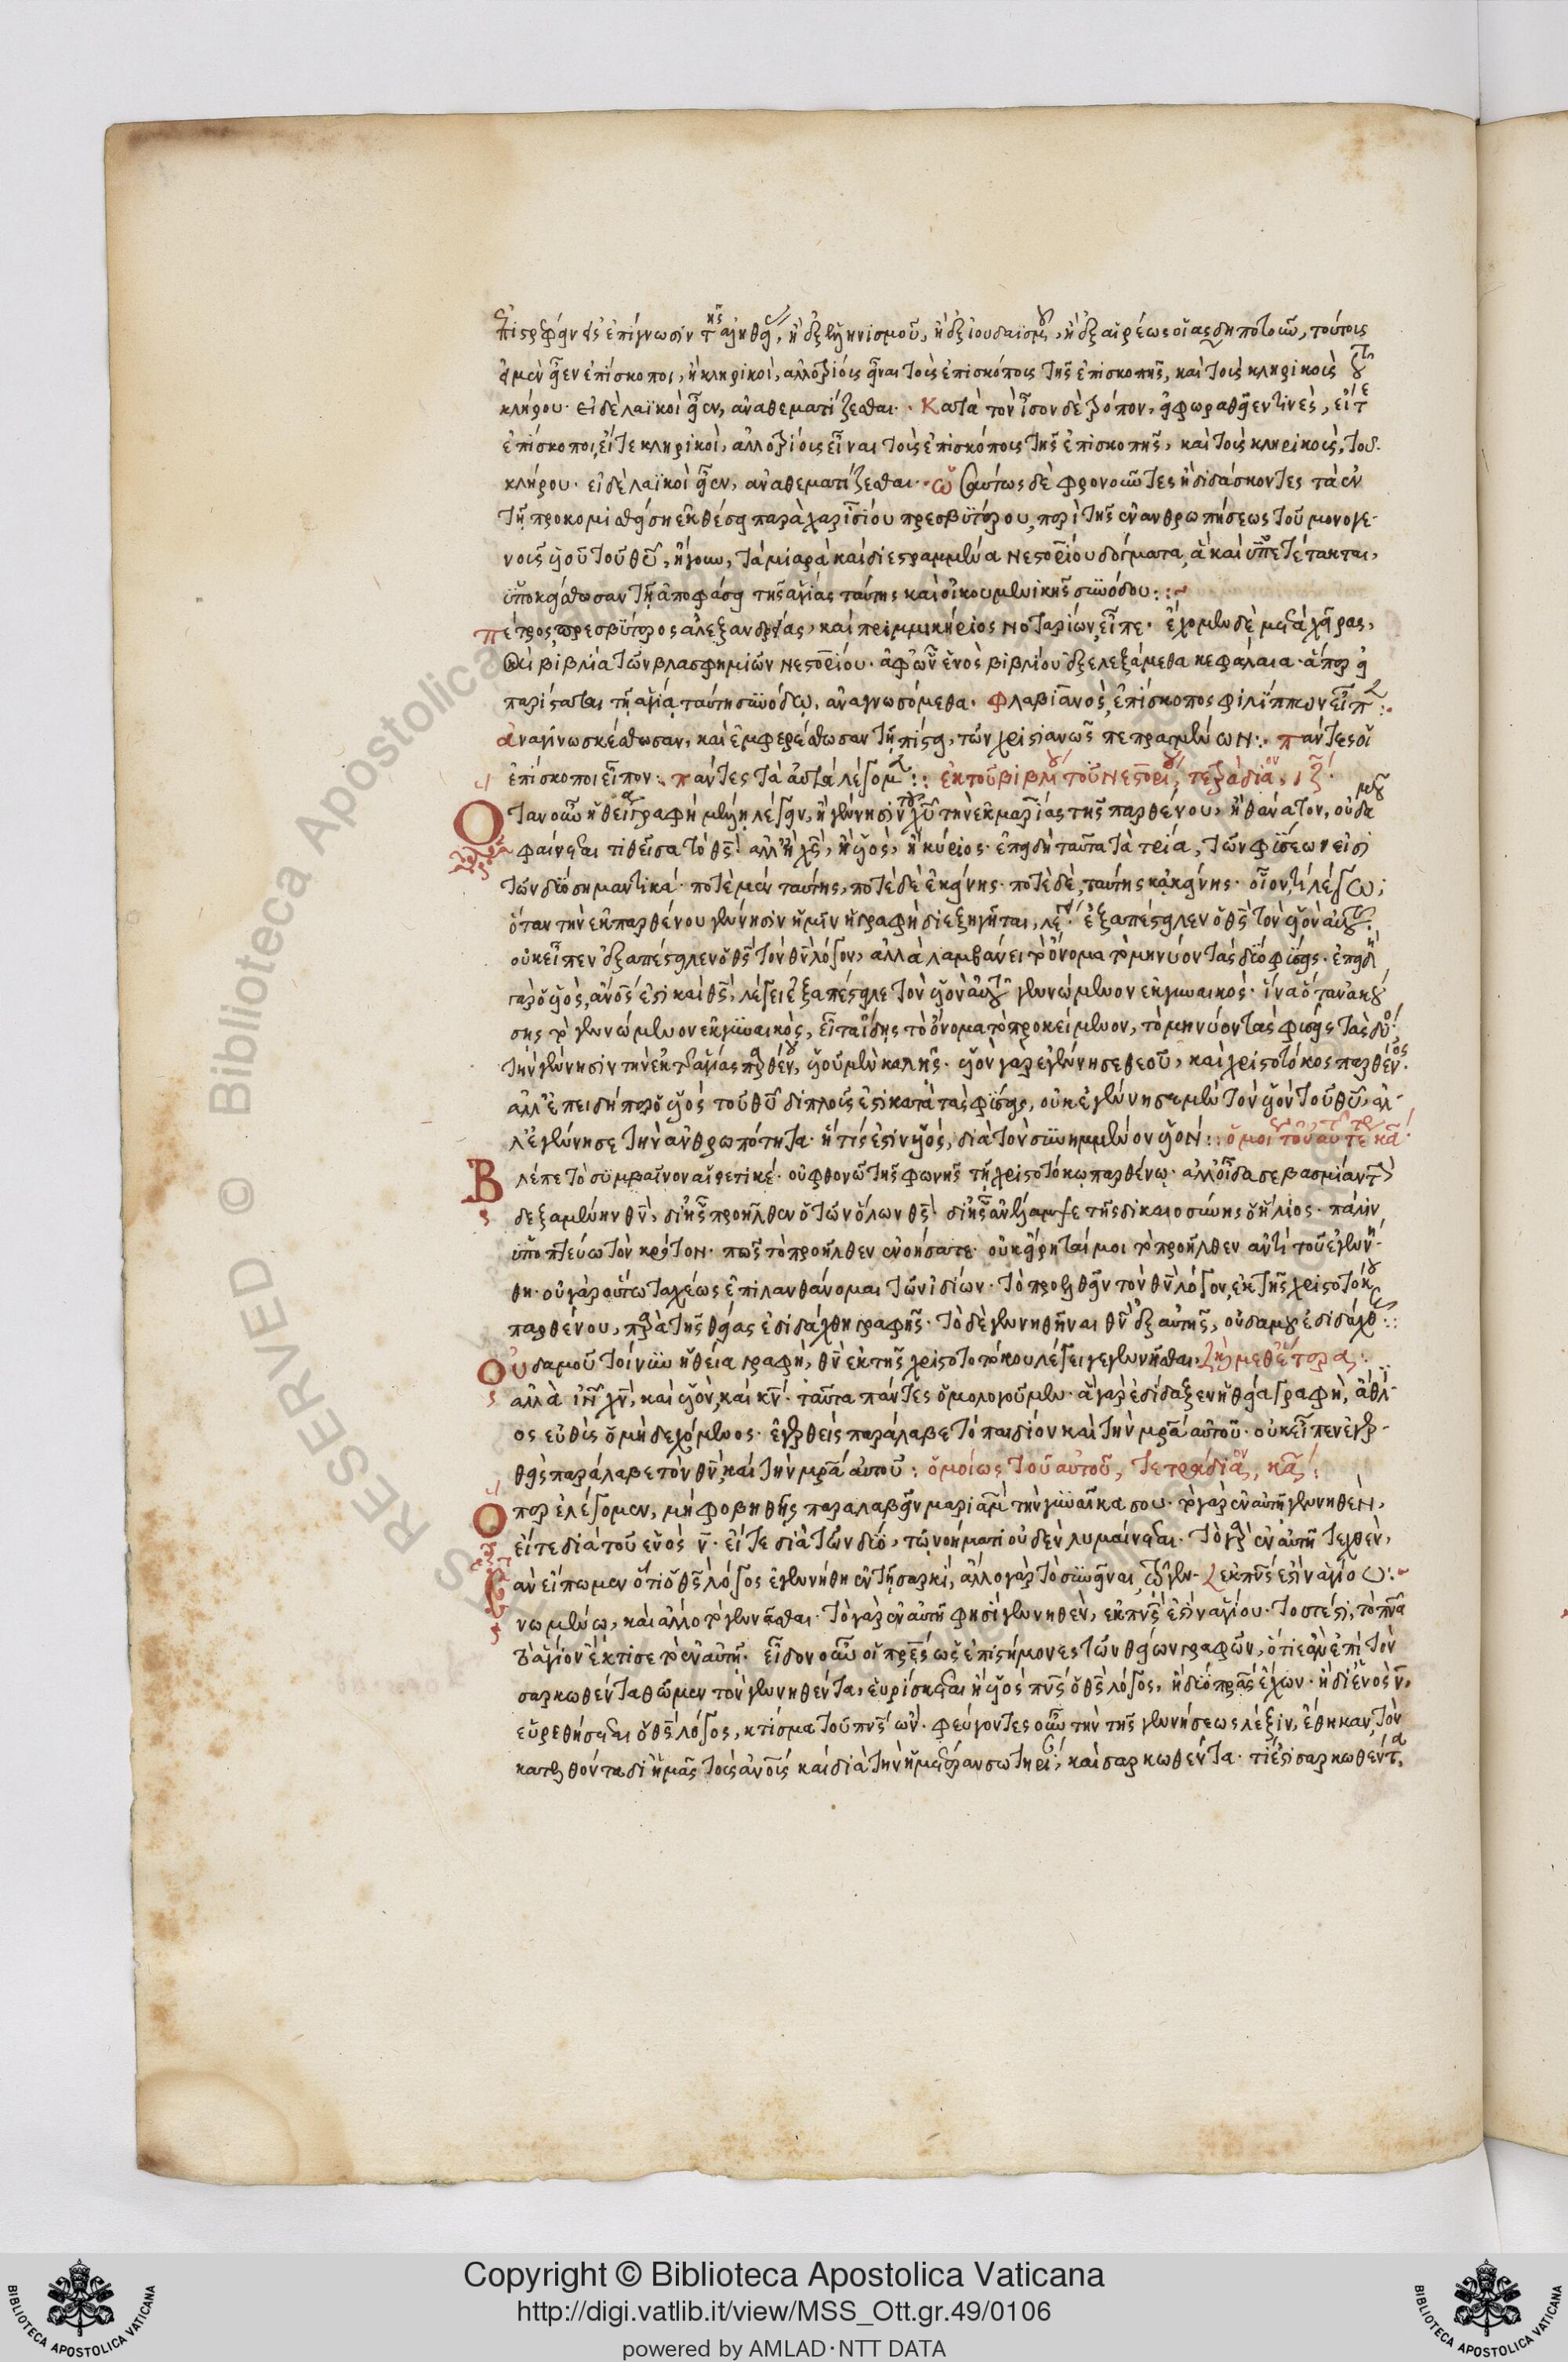 ἐπιστρέφειν εἰς ἐπίγνωσιν τῆς ἀληθείας, ἢ ἐξ ἑλληνισμοῦ, ἢ ἐξ ἰουδαϊσμοῦ, ἢ ἐξ αἱρέσεως οἵας δηποτοῦν, τούτους
εἰ μὲν εἶεν ἐπίσκοποι, ἢ κληρικοὶ, ἀλλοτρίους εἶναι τοὺς ἐπισκόπους τῆς ἐπισκοπῆς, καὶ τοὺς κληρικοὺς τοῦ
κλήρου· εἰ δὲ λαϊκοὶ εἶεν, ἀναθεματίζεσθαι· Κατὰ τὸν ἴσον δὲ τρόπον, εἰ φωραθεῖέν τινες, εἴτε
ἐπίσκοποι, εἴτε κληρικοὶ, ἀλλοτρίους εἶναι τοὺς ἐπισκόπους τῆς ἐπισκοπῆς, καὶ τοὺς κληρικοὺς, τοῦ
κλήρου· εἰ δὲ λαϊκοὶ εἶεν, ἀναθεματίζεσθαι· ὡσαύτως δὲ φρονοῦντες ἢ διδάσκοντες τὰ ἐν
τῇ προκομισθείσῃ ἐκθέσει παρὰ χαρισίου πρεσβυτέρου, περὶ τῆς ἐνανθρωπήσεως τοῦ μονογε-
νοῦς υἱοῦ τοῦ θυ, ἤγουν, τὰ μιαρὰ καὶ διεστραμμένα νεστορίου δόγματα, ἃ καὶ ὑποτέτακται,
ὑποκείσθωσαν τῇ ἀποφάσει τῆς ἁγίας ταύτης καὶ οἰκουμενικῆς συνόδου:
πέτρος πρεσβύτερος ἀλεξανδρείας, καὶ πριμμικήριος νοταρίων, εἶπε· ἔχομεν δὲ μετὰ χεῖρας,
καὶ βιβλία τῶν βλασφημιῶν νεστορίου· ἀφ' ὧν ἑνὸς βιβλίου ἐξελεξάμεθα κεφάλαια· ἅπερ εἰ
παρίσταται τῇ ἁγίᾳ ταύτῃ συνόδῳ, ἀναγνωσόμεθα· φλαβιανὸς, ἐπίσκοπος φιλίππων εἶπε:
ἀναγινωσκέσθωσαν, καὶ ἐμφερέσθωσαν τῇ πίστει, τῶν πεπραγμένων: πάντες οἱ
ἐπίσκοποι εἶπον: πάντες τὰ αὐτὰ λέγομεν: ἐκ τοῦ βιβλίου τοῦ νεστορίου, τετράδιον, ιζ·
Ὅταν οὖν ἡ θεία γραφὴ μέλλῃ λέγειν, ἢ γέννησιν τοῦ χυ τὴν ἐκ μαρίας τῆς παρθένου, ἢ θάνατον, οὐδαμοῦ
φαίνεται τιθεῖσα τὸ θς· ἀλλ' ἢ χς, ἢ υἱὸς, ἢ κύριος· ἐπειδὴ ταῦτα τὰ τρία, τῶν φύσεών εἰσι
τῶν δύο σημαντικά· ποτὲ μὲν ταύτης, ποτὲ δὲ ἐκείνης· ποτὲ δὲ, ταύτης κἀκείνης· οἷόν τι λέγω;
ὅταν τὴν ἐκ παρθένου γέννησιν ἡμῖν ἡ γραφὴ διεξηγῆται, λέγει· ἐξαπέστειλεν ὁ θς τὸν υἱὸν αὐτοῦ·
οὐκ εἶπεν ἐξαπέστειλεν ὁ θς τὸν θν λόγον, ἀλλὰ λαμβάνει τὸ ὄνομα τὸ μηνύον τὰς δύο φύσεις· ἐπειδὴ
γὰρ ὁ υἱὸς, ἀνος ἐστὶ καὶ θς, λέγει ἐξαπέστειλε τὸν υἱὸν αὐτοῦ γενόμενον ἐκ γυναικός· ἵνα ὅταν ἀκού
σῃς τὸ γενόμενον ἐκ γυναικὸς, εἶτα ἴδῃς τὸ ὄνομα τὸ προκείμενον, τὸ μηνύον τὰς φύσεις τὰς δύο·
τὴν γέννησιν τὴν ἐκ τῆς ἁγίας παρθένου, υἱοῦ μὲν καλῇς· υἱὸν γὰρ ἐγέννησε θεοῦ, καὶ χριστοτόκος παρθένος·
ἀλλ' ἐπειδήπερ ὁ υἱὸς τοῦ θυ διπλοῦς ἐστὶ κατὰ τὰς φύσεις, οὐκ ἐγέννησε μὲν τὸν υἱὸν τοῦ θυ, ἀλ-
λ' ἐγέννησε τὴν ἀνθρωπότητα· ἥτις ἐστὶν υἱὸς, διὰ τὸν συνημμένον υἱόν: ὁμοίως τοῦ αὐτοῦ τετρ κα·
Βλέπε τὸ συμβαῖνον αἱρετικέ· οὐ φθονῶ τῆς φωνῆς τῇ χριστοτόκῳ παρθένῳ· ἀλλ' οἶδα σεβασμίαν τὴν
δεξαμένην θν, δι' ἧς προῆλθεν ὁ τῶν ὅλων θς· δι' ἧς ἀνέλαμψε τῆς δικαιοσύνης ὁ ἥλιος· πάλιν
ὑποπτεύω τὸν κρότον· πῶς τὸ προῆλθεν ἐνοήσατε· οὐκ εἴρηταί μοι τὸ προῆλθεν ἀντὶ τοῦ ἐγεννή-
θη· οὐ γὰρ οὕτω ταχέως ἐπιλανθάνομαι τῶν ἰδίων· τὸ προελθεῖν τὸν θν λόγον, ἐκ τῆς χριστοτόκου
παρθένου, παρὰ τῆς θείας ἐδιδάχθη γραφῆς· τὸ δὲ γεννηθῆναι θν ἐξ αὐτῆς, οὐδαμοῦ ἐδιδάχθη:
Οὐδαμοῦ τοίνυν ἡ θεία γραφὴ, θν ἐκ τῆς χριστοτόκου λέγει γεγεννῆσθαι, μεθ' ἕτερα:
ἀλλὰ ιν χν, καὶ υἱὸν, καὶ κν· ταῦτα πάντες ὁμολογοῦμεν· ἃ γὰρ ἐδίδαξεν ἡ θεία γραφὴ, ἄθλι-
ος εὐθὺς ὁ μὴ δεχόμενος· ἐγερθεὶς παράλαβε τὸ παιδίον καὶ τὴν μρα αὐτοῦ· οὐκ εἶπεν ἐγερ-
θεὶς παράλαβε τὸν θν, καὶ τὴν μρα αὐτοῦ: ὁμοίως τοῦ αὐτοῦ, τετράδιον, κα:
Ὅπερ ἐλέγομεν, μὴ φοβηθῇς παραλαβεῖν μαριὰμ τὴν γυναῖκα σου· τὸ γὰρ ἐν αὐτῇ γεννηθὲν,
εἴτε διὰ τοῦ ἑνὸς ν· εἴτε διὰ τῶν δύο, τῷ νοήματι οὐδὲν λυμαίνεται· τὸ γὰρ ἐν αὐτῇ τεχθὲν,
ἐκ πνς ἐστὶν ἁγίου:
ἐὰν εἴπωμεν ὅτι ὁ θς λόγος ἐγεννήθη ἐν τῇ σαρκὶ, ἄλλο γὰρ τὸ συνεῖναι τῷ γεν-
νωμένῳ, καὶ ἄλλο τὸ γεννᾶσθαι· τὸ γὰρ ἐν αὐτῇ φησὶ γεννηθὲν, ἐκ πνς ἐστὶν ἁγίου· τουτέστι, τὸ πνα
τὸ ἅγιον ἔκτισε τὸ ἐν αὐτῇ· εἶδον οὖν οἱ πρες ὡς ἐπιστήμονες τῶν θείων γραφῶν, ὅτι ἐὰν ἐπὶ τὸν
σαρκωθέντα θῶμεν τὸν γεννηθέντα, εὑρίσκεται ἢ υἱὸς πνς ὁ θς λόγος, ἢ δύο πρας ἔχων· ἢ δι' ἑνὸς ν,
εὑρεθήσεται ὁ θς λόγος, κτίσμα τοῦ πνς ὤν· φεύγοντες οὖν τὴν τῆς γεννήσεως λέξιν, ἔθηκαν, τὸν
κατελθόντα δι' ἡμᾶς τοὺς ἀνους καὶ διὰ τὴν ἡμετέραν σωτηρίαν, καὶ σαρκωθέντα· τί ἐστι σαρκωθέντα,
Copyright © Biblioteca Apostolica Vaticana
http://digi.vatlib.it/view/MSS_Ott.gr.49/0106
powered by AMLAD·NTT DATA
BIBLIOTECA APOSTOLICA VATICANA
BIBLIOTECA APOSTOLICA VATICANA